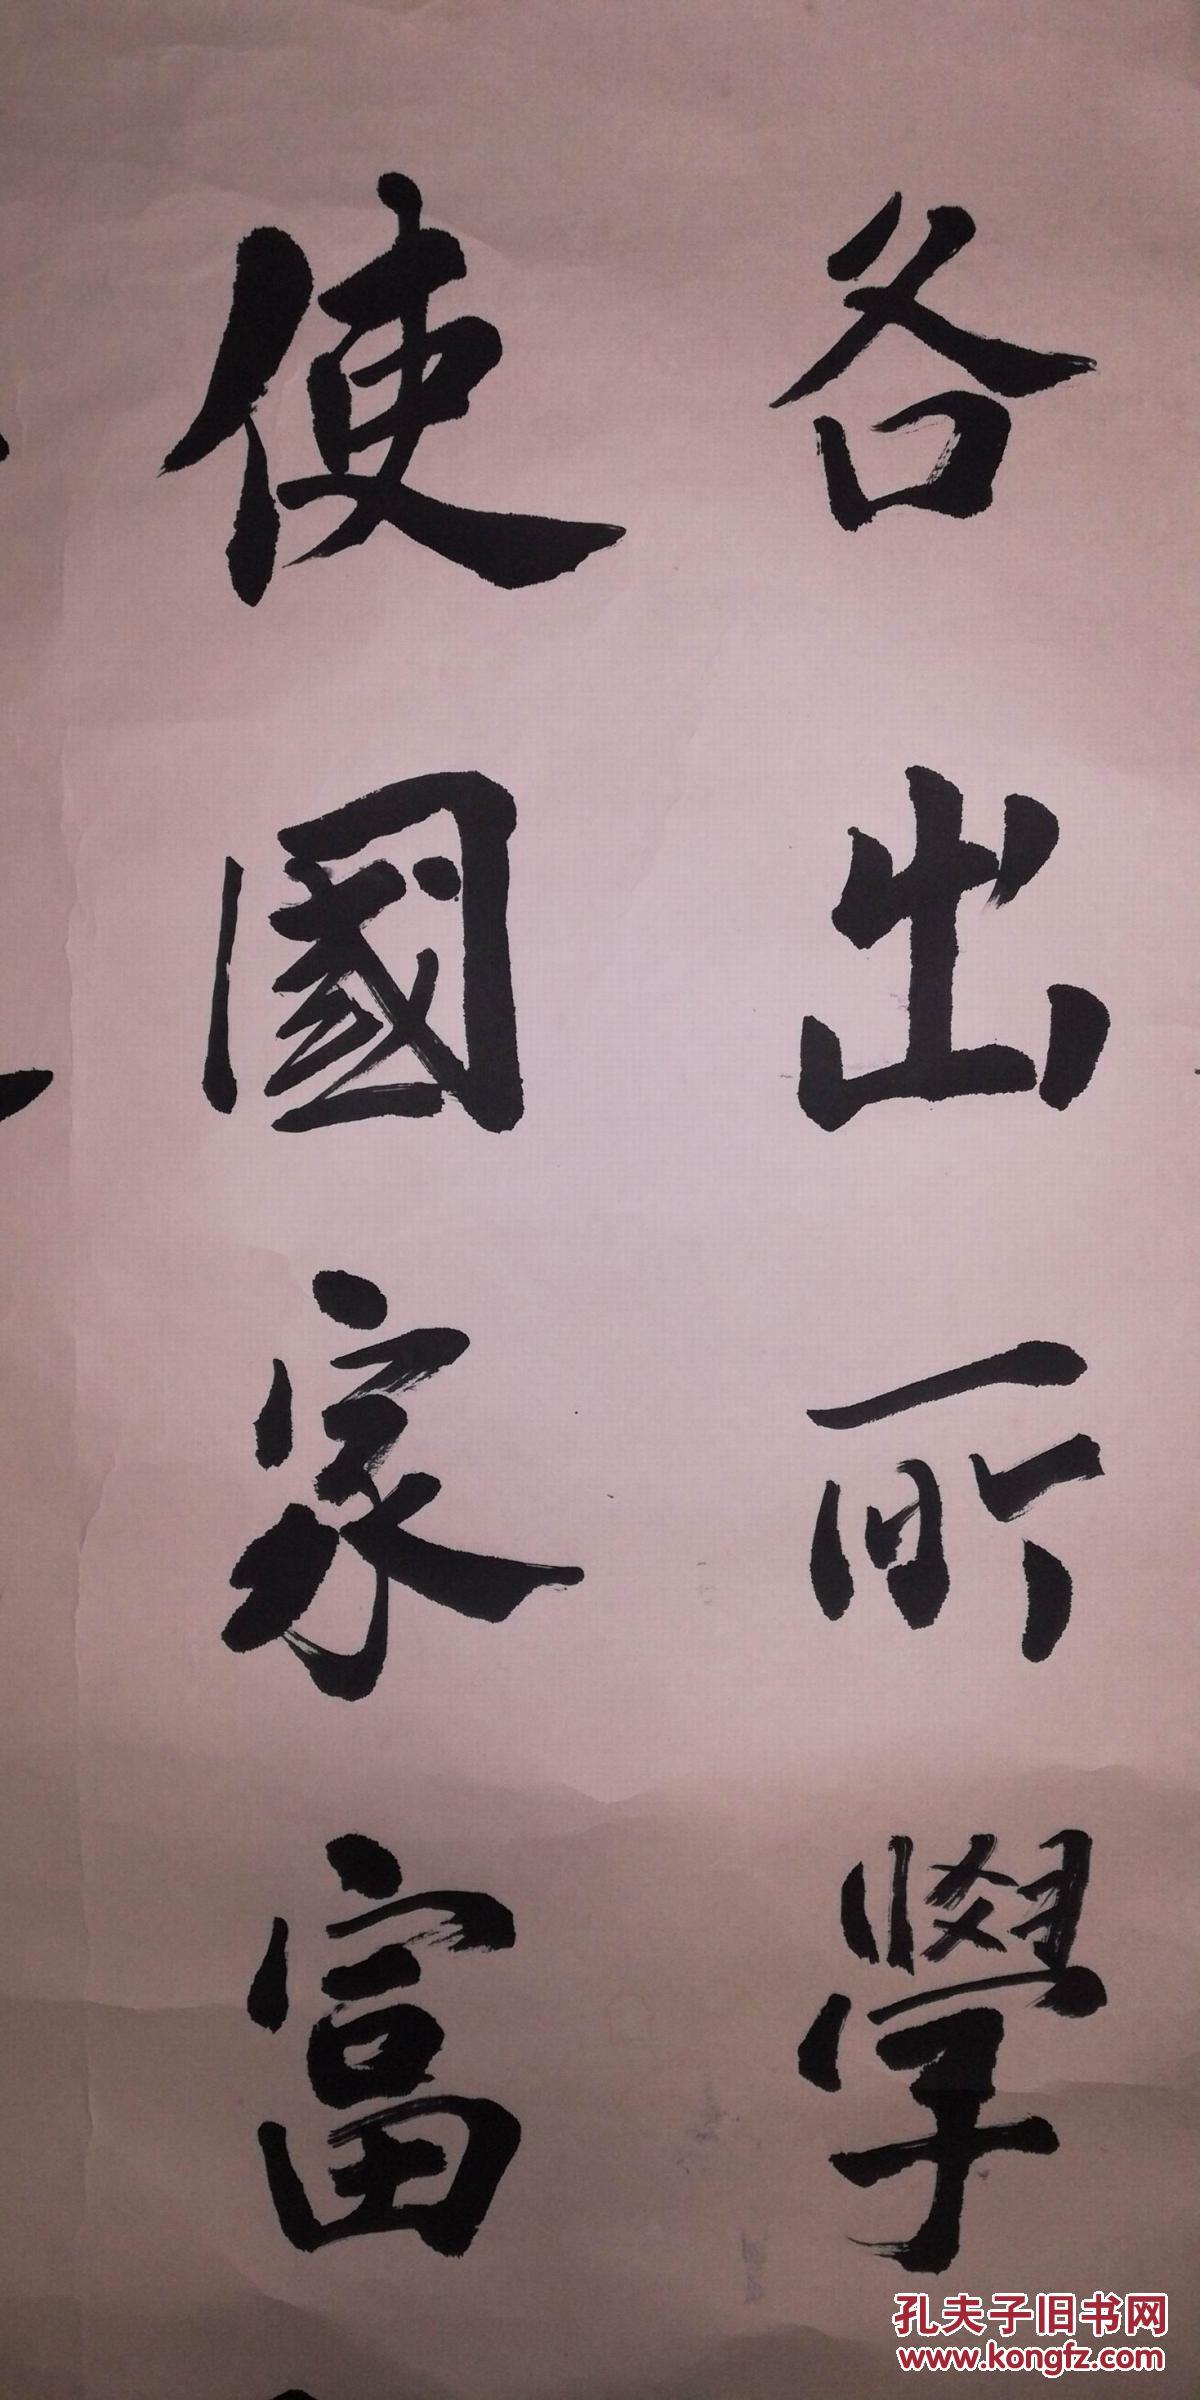 各出所學
使國家富
孔夫子旧书网
www.kongfz.com